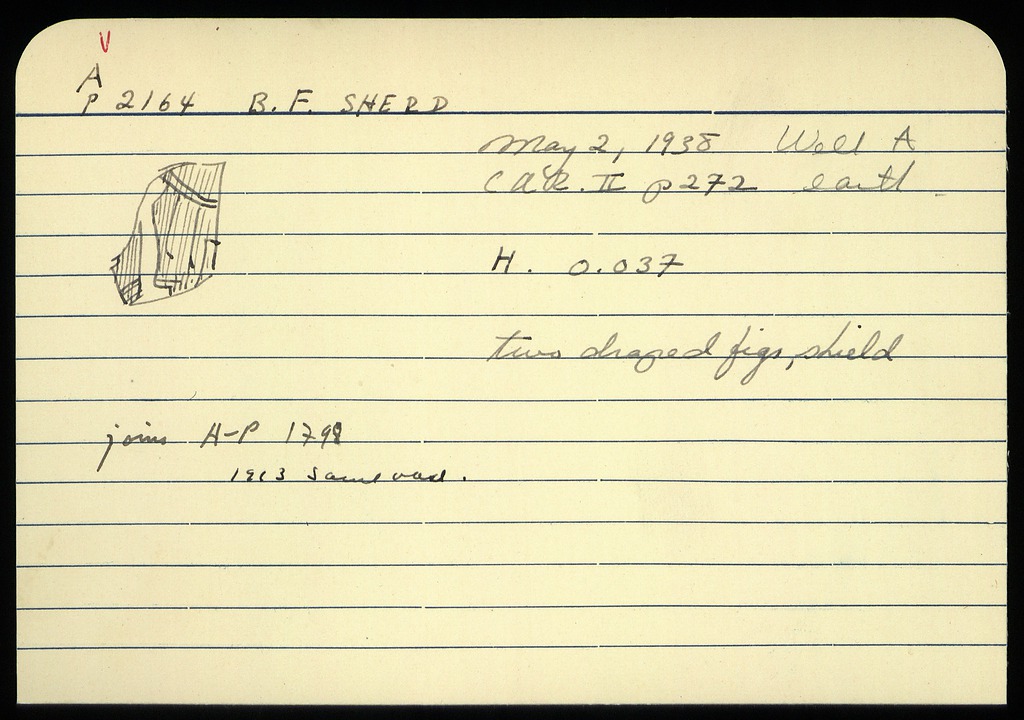 V
A
P 2164 B. F. SHERD
May 2, 1938 Well A
CAR. II p 272 earth
H. 0.037
two draped figs, shield
joins A-P 1798
1913 same vase.